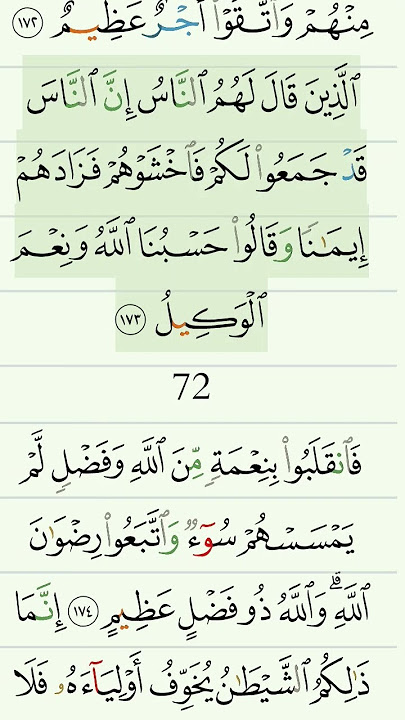 مِنْهُمْ وَٱتَّقَوْا۟ أَجْرٌ عَظِيمٌ ١٧٢
ٱلَّذِينَ قَالَ لَهُمُ ٱلنَّاسُ إِنَّ ٱلنَّاسَ
قَدْ جَمَعُوا۟ لَكُمْ فَٱخْشَوْهُمْ فَزَادَهُمْ
إِيمَـٰنًا وَقَالُوا۟ حَسْبُنَا ٱللَّهُ وَنِعْمَ
ٱلْوَكِيلُ ١٧٣
72
فَٱنقَلَبُوا۟ بِنِعْمَةٍ مِّنَ ٱللَّهِ وَفَضْلٍ لَّمْ
يَمْسَسْهُمْ سُوٓءٌ وَٱتَّبَعُوا۟ رِضْوَٰنَ
ٱللَّهِ ۗ وَٱللَّهُ ذُو فَضْلٍ عَظِيمٍ ١٧٤ إِنَّمَا
ذَٰلِكُمُ ٱلشَّيْطَـٰنُ يُخَوِّفُ أَوْلِيَآءَهُۥ فَلَا